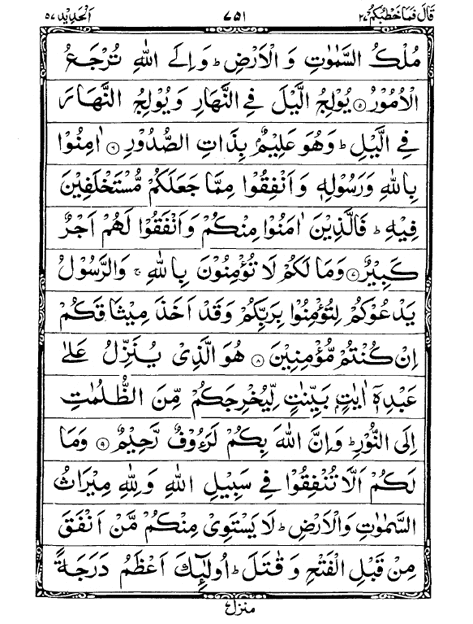 قَالَ فَمَا خَطْبُكُمْ ٢٧ ٧٥١ اَلْحَدِيْد ٥٧
مُلْكُ السَّمٰوٰتِ وَ الْاَرْضِ ؕ وَاِلَى اللّٰهِ تُرْجَعُ
الْاُمُوْرُ ۝٥ يُوْلِجُ الَّيْلَ فِى النَّهَارِ وَيُوْلِجُ النَّهَارَ
فِى الَّيْلِ ؕ وَهُوَ عَلِيْمٌۢ بِذَاتِ الصُّدُوْرِ ۝٦ اٰمِنُوْا
بِاللّٰهِ وَرَسُوْلِهٖ وَاَنْفِقُوْا مِمَّا جَعَلَكُمْ مُّسْتَخْلَفِيْنَ
فِيْهِ ؕ فَالَّذِيْنَ اٰمَنُوْا مِنْكُمْ وَاَنْفَقُوْا لَهُمْ اَجْرٌ
كَبِيْرٌ ۝٧ وَمَا لَكُمْ لَا تُؤْمِنُوْنَ بِاللّٰهِ ۚ وَالرَّسُوْلُ
يَدْعُوْكُمْ لِتُؤْمِنُوْا بِرَبِّكُمْ وَقَدْ اَخَذَ مِيْثَاقَكُمْ
اِنْ كُنْتُمْ مُّؤْمِنِيْنَ ۝٨ هُوَ الَّذِىْ يُنَزِّلُ عَلٰى
عَبْدِهٖۤ اٰيٰتٍۭ بَيِّنٰتٍ لِّيُخْرِجَكُمْ مِّنَ الظُّلُمٰتِ
اِلَى النُّوْرِ ؕ وَاِنَّ اللّٰهَ بِكُمْ لَرَءُوْفٌ رَّحِيْمٌ ۝٩ وَمَا
لَكُمْ اَلَّا تُنْفِقُوْا فِىْ سَبِيْلِ اللّٰهِ وَلِلّٰهِ مِيْرَاثُ
السَّمٰوٰتِ وَالْاَرْضِ ؕ لَا يَسْتَوِىْ مِنْكُمْ مَّنْ اَنْفَقَ
مِنْ قَبْلِ الْفَتْحِ وَ قٰتَلَ ؕ اُولٰٓئِكَ اَعْظَمُ دَرَجَةً